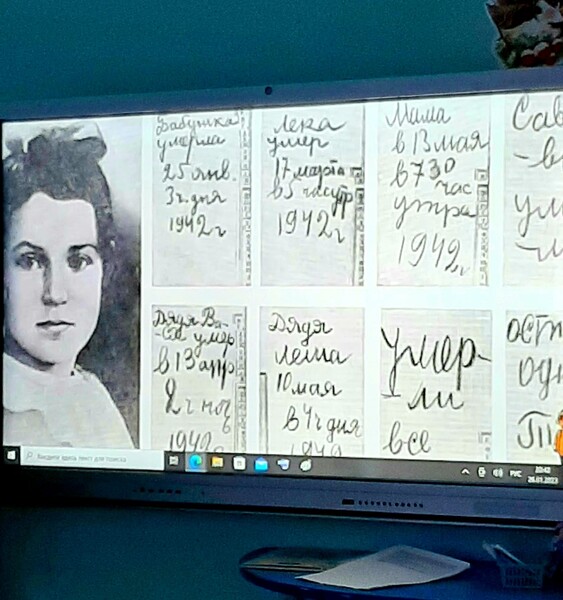 Бабушка
умерла
25 янв.
3 ч. дня
1942 г
Лека
умер
17 марта
в 5 час утр
1942 г
Мама
в 13 мая
в 7 30
час
утра
1942 г
Сав
-в
ум
Дядя Ва-
ся умер
в 13 апр
2 ч ноч
1942 г
Дядя
Леша
10 мая
в 4 ч дня
1942
умер-
ли
все
оста
одн
Введите здесь текст для поиска
РУС
20:42
26.01.2023